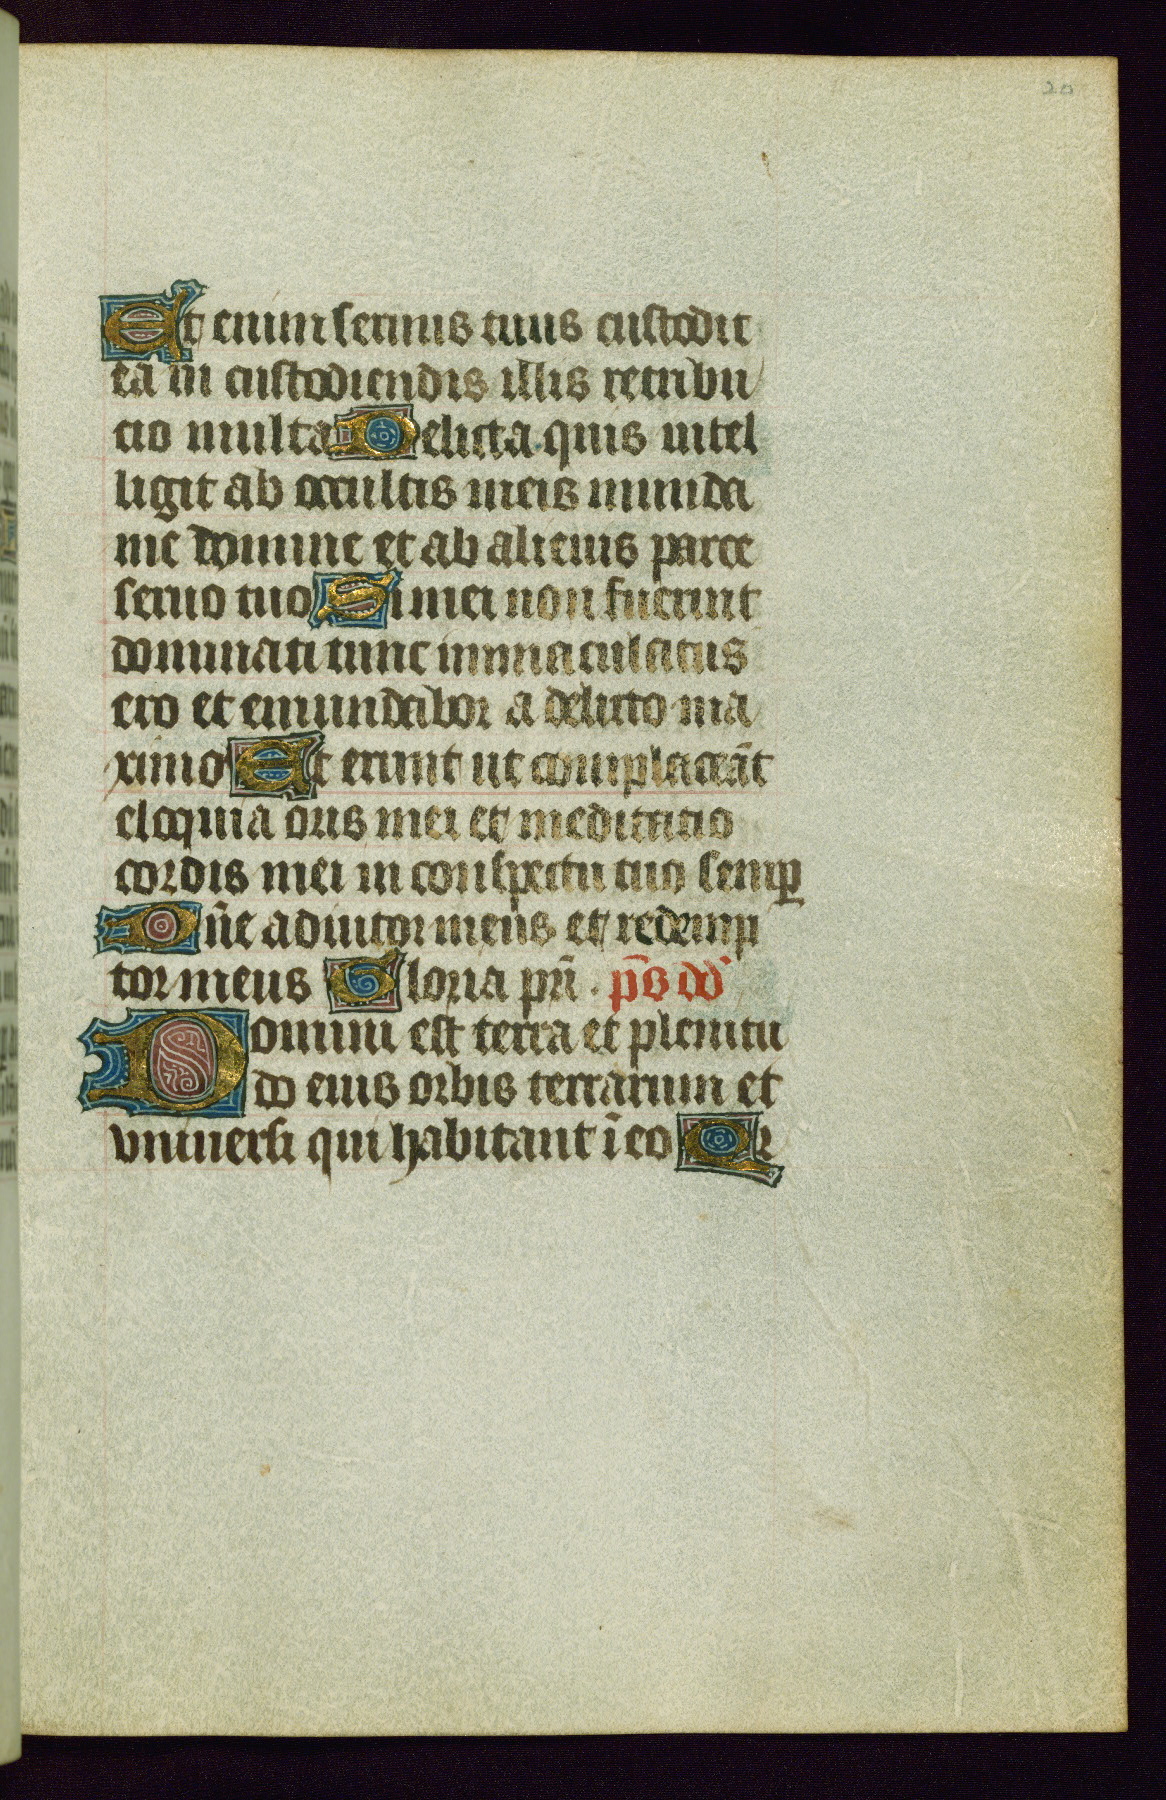 20
Et enim seruus tuus custodit
ea in custodiendis illis retribu
tio multa Delicta quis intel
ligit ab occultis meis munda
me domine et ab alienis parce
seruo tuo Si mei non fuerint
dominati tunc inmaculatus
ero et emundabor a delicto ma
ximo Et erunt ut complaceāt
eloquia oris mei et meditatio
cordis mei in conspectu tuo semꝑ
Dn̄e adiutor meus et redemp
tor meus Gloria pr̄i . ps̄ dd'
Domini est terra et plenitu
do eius orbis terrarum et
vniuersi qui habitant ī eo Q̇r